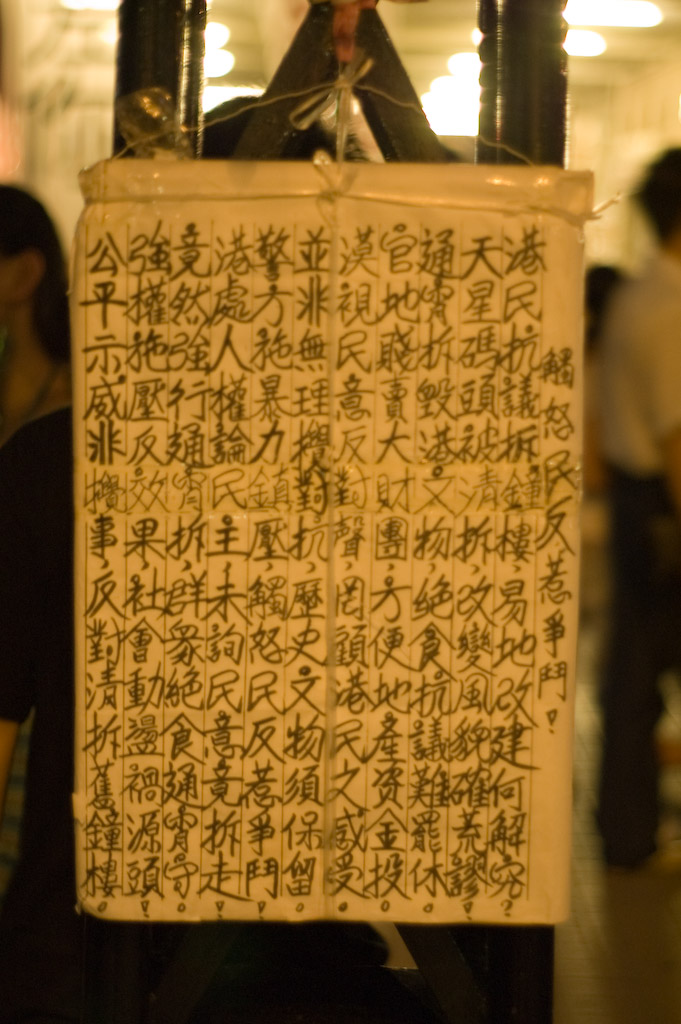 觸怒民反惹爭鬥!
港民抗議拆鐘樓,易地改建何解究?
天星碼頭被清拆,改變風貌確荒謬!
通宵拆毀港文物,絕食抗議難罷休。
官地賤賣大財團,方便地產资金投。
漠視民意反對聲,罔顧港民之感受。
並非無理攪對抗,歷史文物須保留。
警方施暴力鎮壓,觸怒民反惹爭鬥!
港處人權論民主,未詢民意竟拆走!
竟然強行通宵拆,群衆絕食通宵守。
強權施壓反效果,社會動盪禍源頭!
公平示威非攪事,反對清拆舊鐘樓。